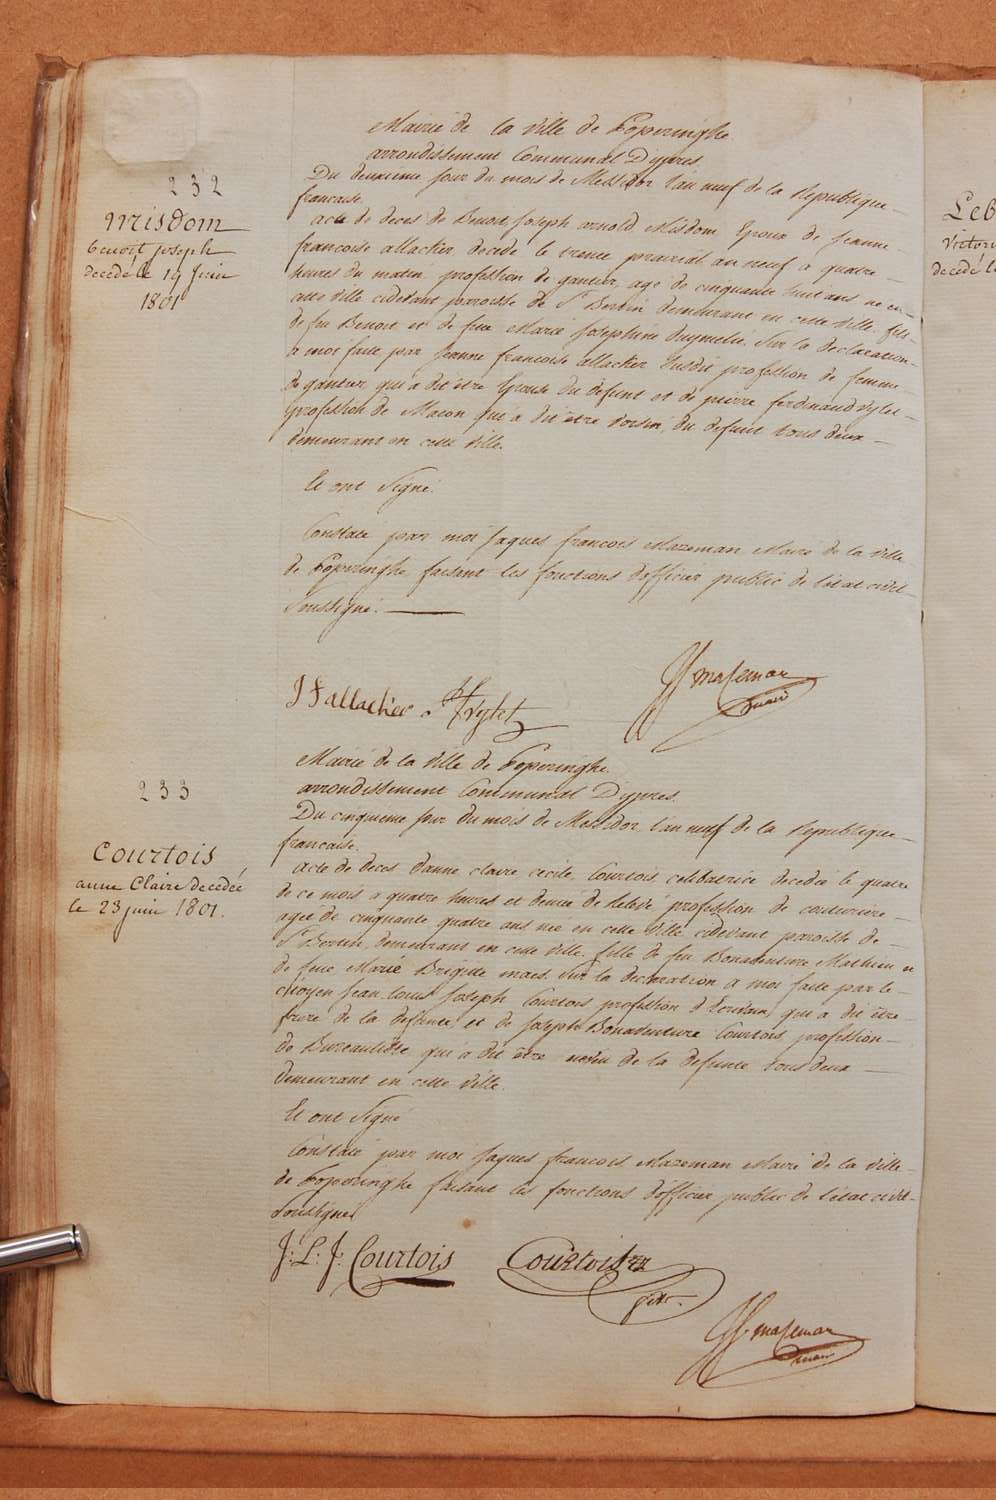 Mairie de la ville de Poperinghe
arrondissement Communal D'ypres
232
Du deuxieme jour du mois de Messidor l'an neuf de la Republique
francaise.
Misdom
benoit joseph
decedé le 19 juin
1801
acte de deces de Benoit Joseph arnold Misdom Epoux de Jeanne
francoise allacker decede le trente prairial an neuf a quatre
heures du matin profession de gantier, age de cinquante huit ans ne en
cette ville cidevant paroisse de St Bertin demeurant en cette ville, fils
de feu Benoit et de feue Marie Josephine sur la declaration
a moi faite par Jeanne francoise allacker susdit profession de femme
de gantier qui a dit être Epouse du defunt et de pierre ferdinand vylet
profession de Macon qui a dit être voisin du defunt tous deux
demeurant en cette ville.
Et ont Signé.
Constaté par moi Jaques francois Mazeman Maire de la ville
de Poperinghe faisant les fonctions d'officier public de l'etat civil
soussigné.
J F allacker PF vylet
JJ mazeman
maire
Mairie de la ville de Poperinghe.
arrondissement Communal D'ypres.
233
Du cinquieme jour du mois de Messidor l'an neuf de la Republique
francaise.
Courtois
anne Claire decedée
le 23 juin 1801.
acte de deces d'anne claire cecile Courtois celibatrice decedée le quatre
de ce mois a quatre heures et demie de relevé profession de couturiere
agée de cinquante quatre ans née en cette ville cidevant paroisse de
St Bertin, demeurant en cette ville, fille de feu Bonaventure Mathieu et
de feue Marie Brigitte maes. Sur la declaration a moi faite par le
citoyen Jean louis Joseph Courtois profession d'Ecrivain, qui a dit être
frere de la defunte, et de Joseph Bonaventure Courtois, profession
de Bureauliste qui a dit être neveu de la defunte tous deux
demeurant en cette ville.
Et ont Signé
Constaté par moi Jaques francois Mazeman Maire de la ville
de Poperinghe faisant les fonctions d'officier public de l'etat civil
soussigné
J: L: J: Courtois Courtois
JJ. mazeman
maire
Leb
Victori
decedé l